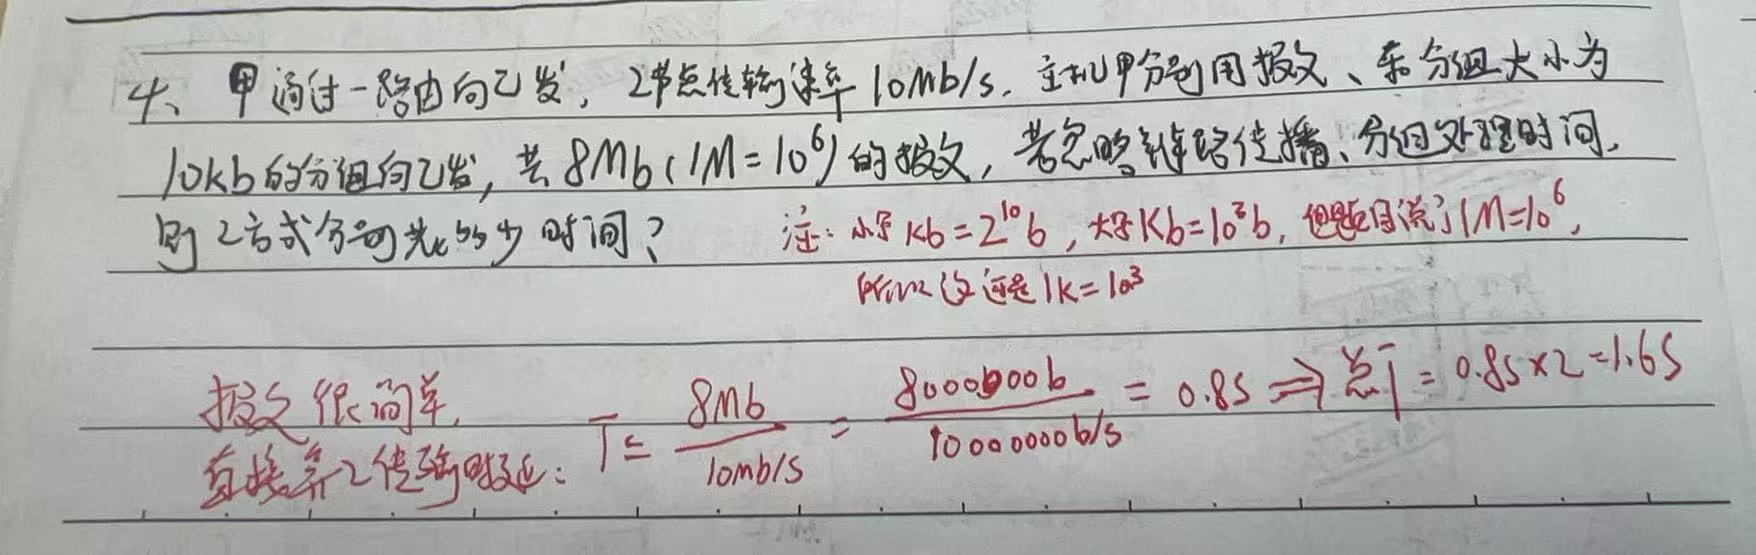 4、甲通过一路由向乙发,2节点传输速率10Mb/s.主机甲分别用报文、和分组大小为
10kb的分组向乙发,共8Mb(1M=10⁶)的报文,若忽略链路传播、分组处理时间,
则2方式分别花多少时间?
注:小写kb=2¹⁰b,大写Kb=10³b,但题目说了1M=10⁶,
所以这还是1K=10³
报文很简单,
直接算2传输时延:
T= 8Mb/10mb/s = 8000000b/10000000b/s = 0.8S ⇒ 总T = 0.8S×2=1.6S